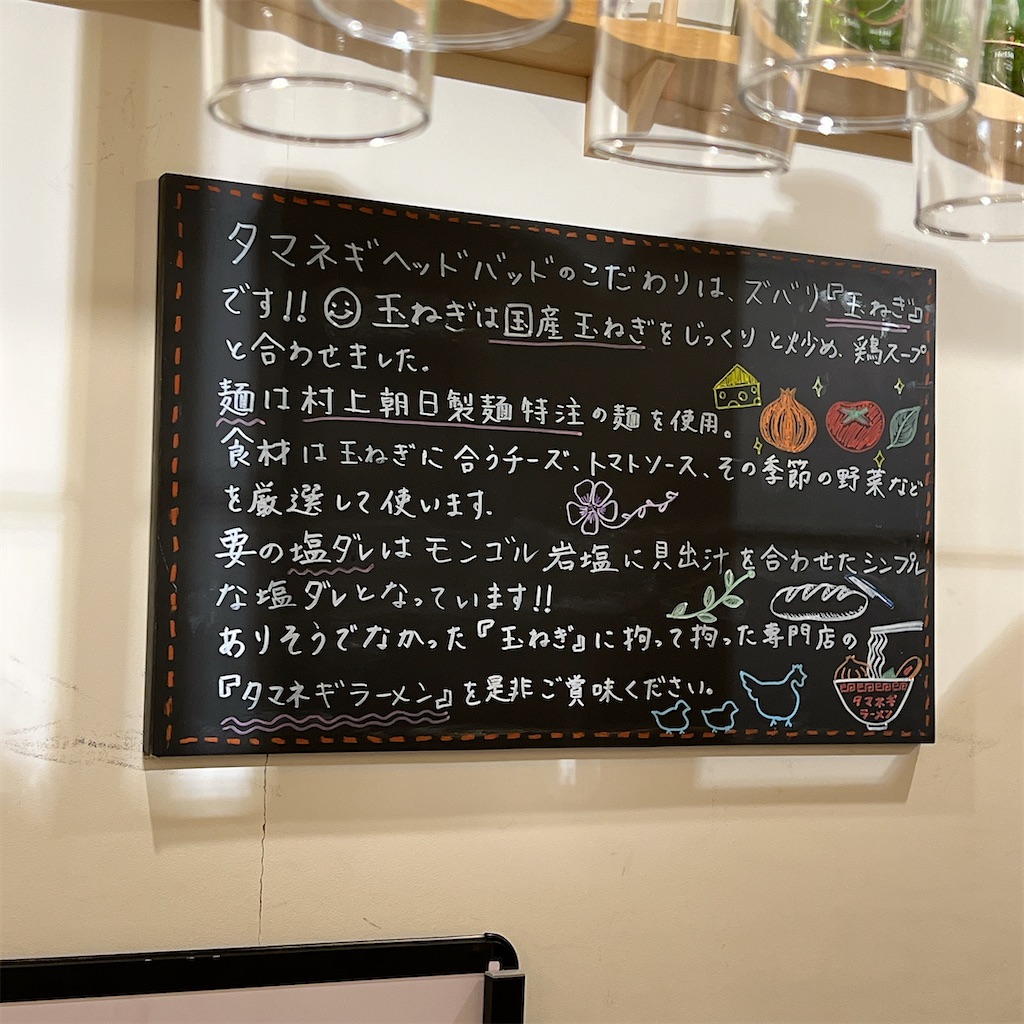 タマネギヘッドバッドのこだわりは、ズバリ『玉ねぎ』
です!! 玉ねぎは国産玉ねぎをじっくりと炒め、鶏スープ
と合わせました。
麺は村上朝日製麺特注の麺を使用。
食材は玉ねぎに合うチーズ、トマトソース、その季節の野菜など
を厳選して使います。
要の塩ダレはモンゴル岩塩に貝出汁を合わせたシンプル
な塩ダレとなっています!!
ありそうでなかった『玉ねぎ』に拘って拘った専門店の
『タマネギラーメン』を是非ご賞味ください。
タマネギ
ラーメン